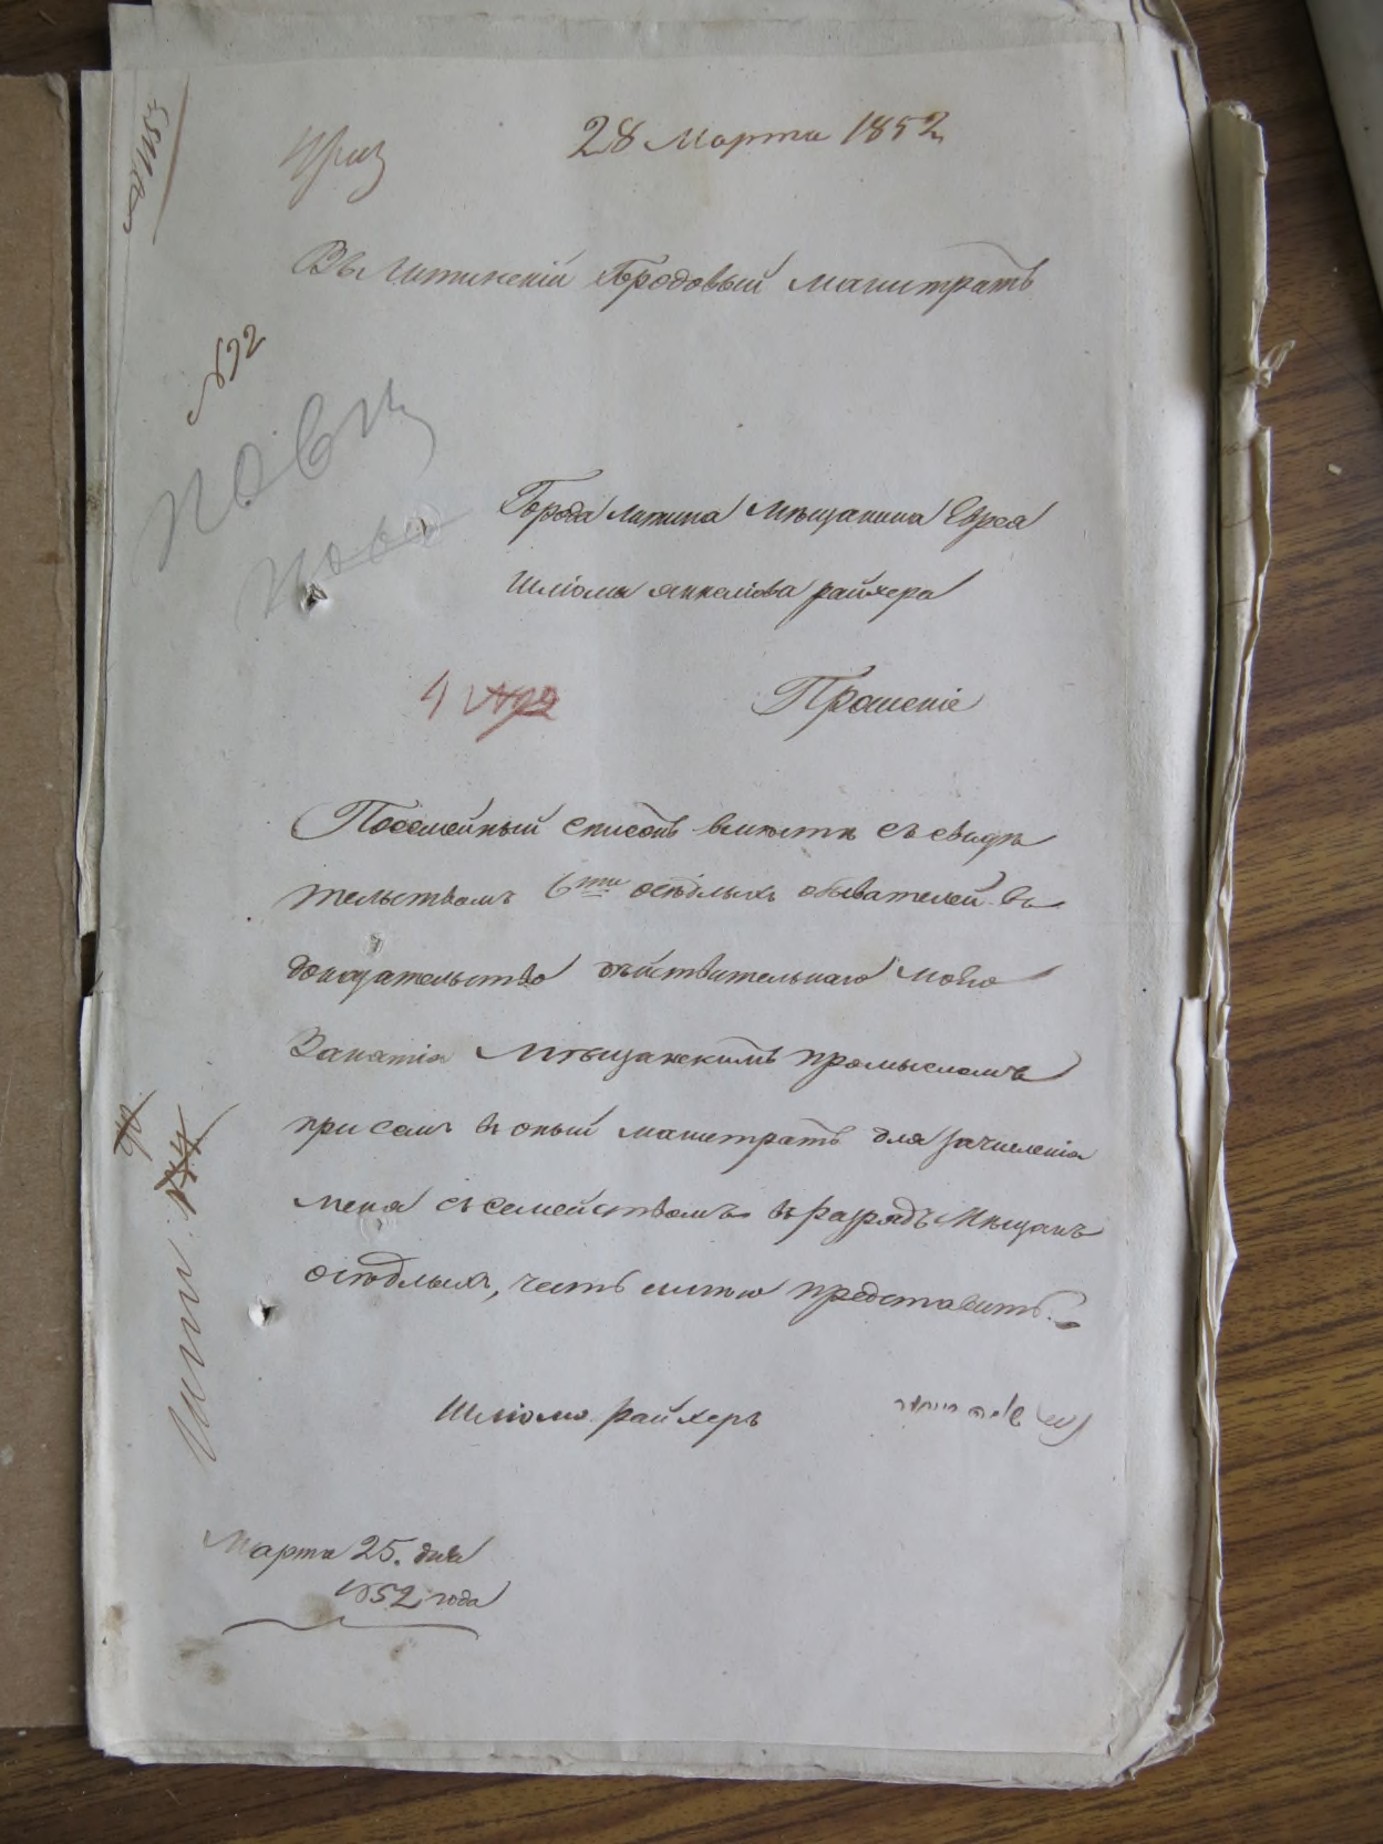 28 Марта 1852
Въ Литинскій Городовый Магистратъ
№92
Города Литина Мѣщанина Еврея
Шліомы Янкеліова Райхера
Прошеніе
Посемейный списокъ вмѣстѣ съ свидѣ
тельствомъ 6ти осѣдлыхъ обывателей въ
доказательство дѣйствительнаго моего
Занятія Мѣщанскимъ промысломъ
при семъ въ оный магистратъ для зачисленія
меня съ семействомъ въ разрядъ Мѣщанъ
осѣдлыхъ, честь имѣю представить.
Шліомо Райхеръ שלמה רייחער
Марта 25. дня
1852 года